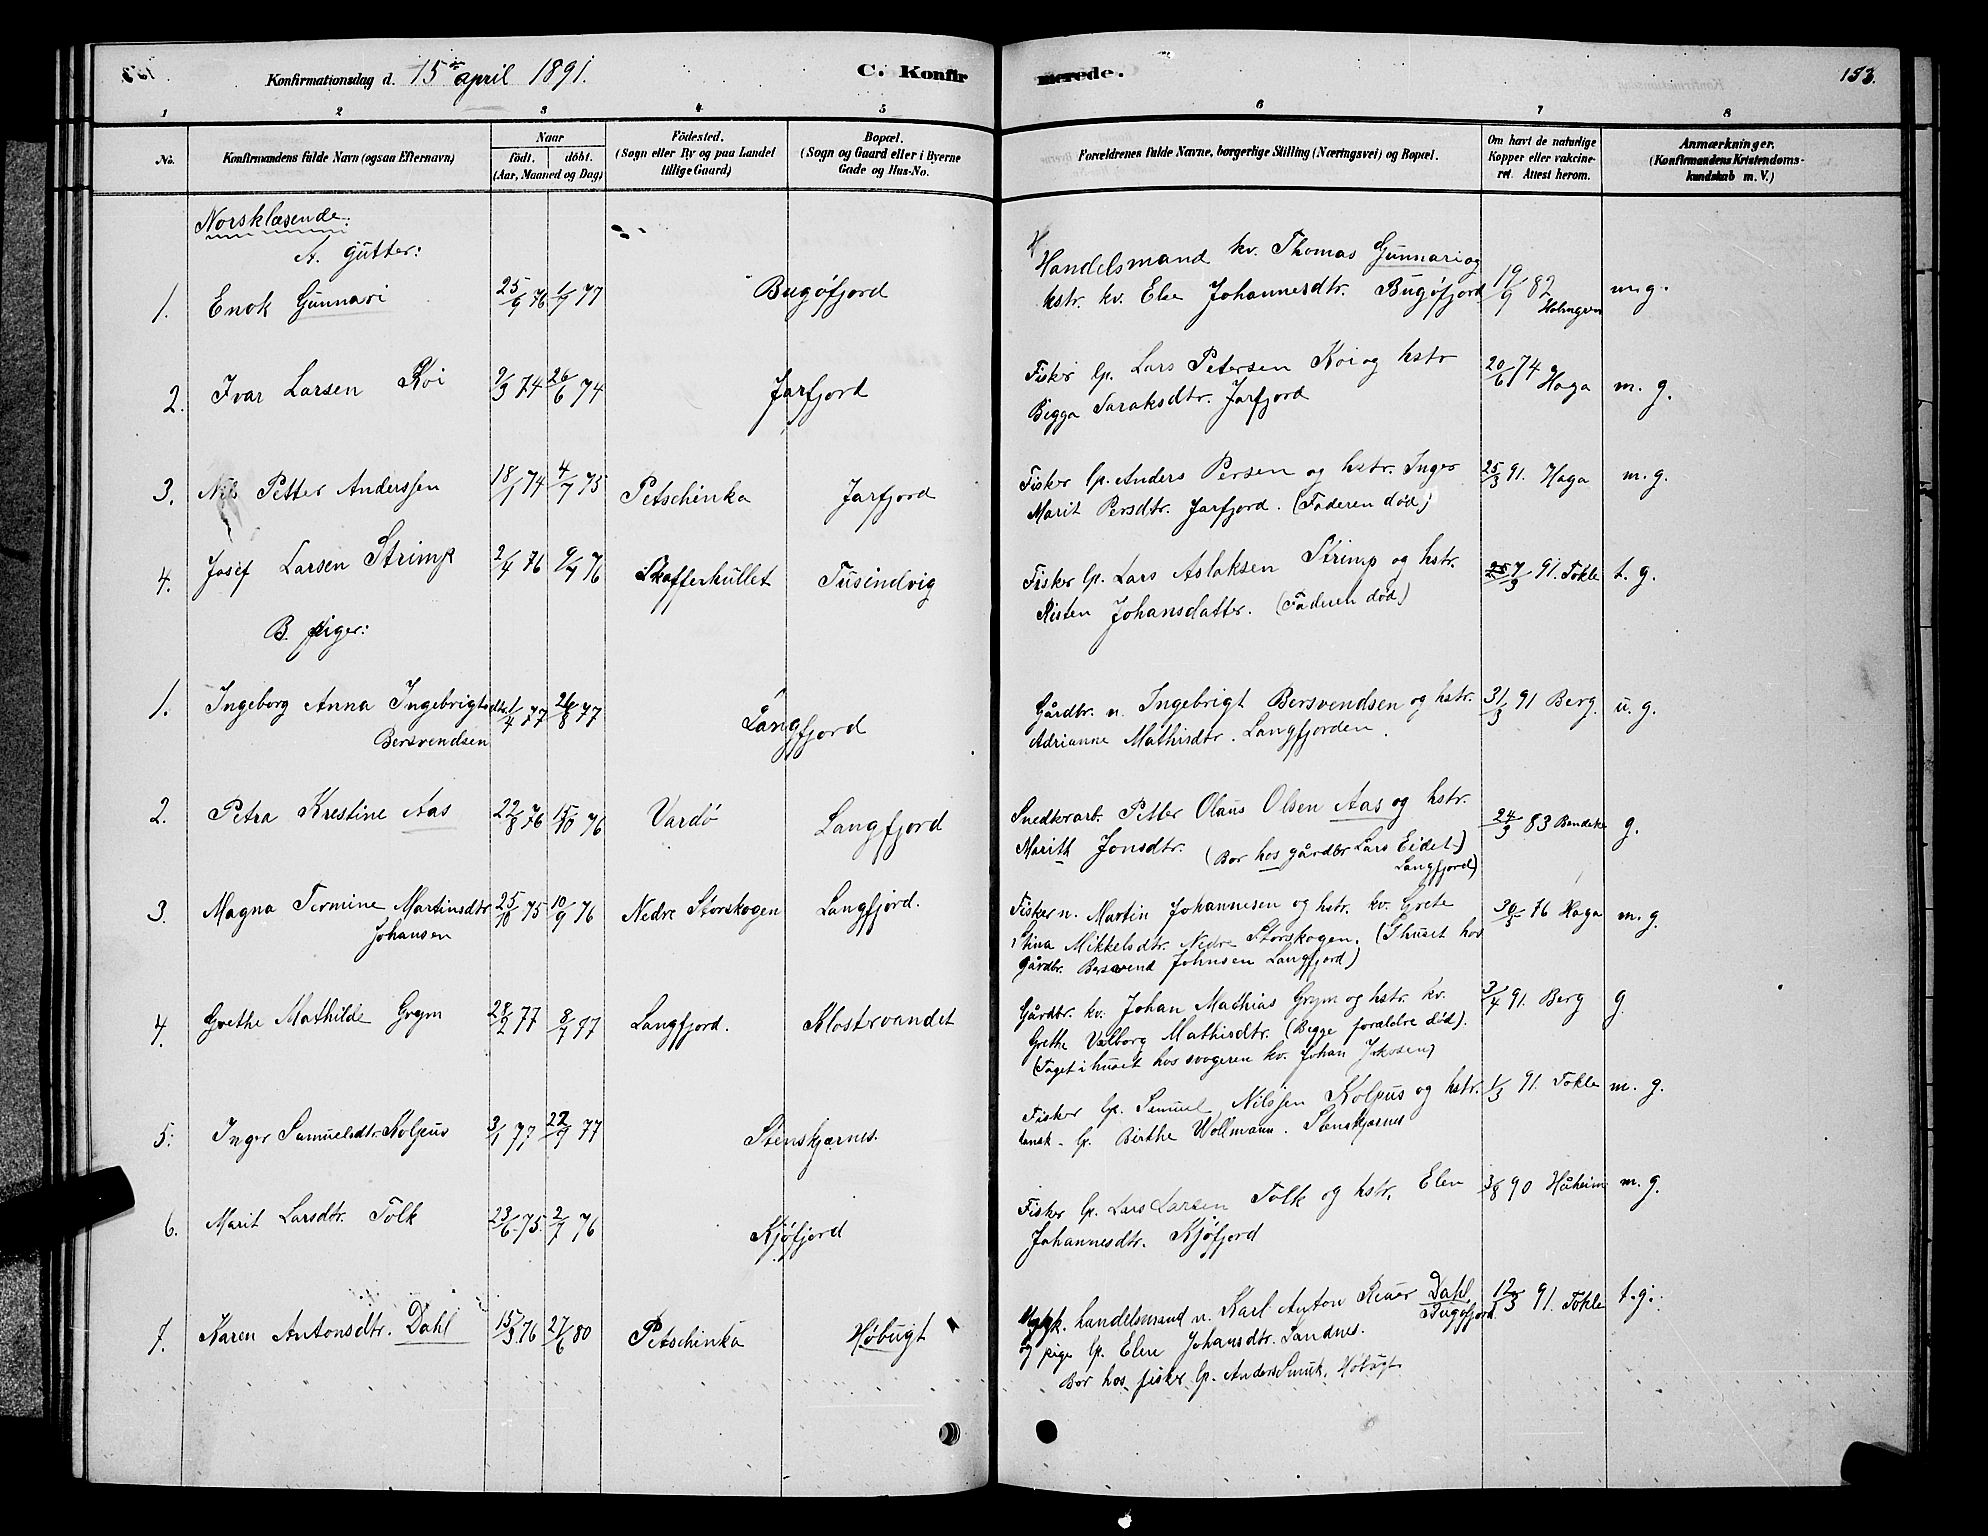 Konfirmationsdag d. 15de april 1891.
C. Konfirmerede.
153.
1 2 3 4 5 6 7 8
No.
Konfirmandens fulde Navn (ogsaa Efternavn)
Naar
født. døbt.
(Aar, Maaned og Dag)
Fødested.
(Sogn eller By og paa Landet
tillige Gaard)
Bopæl.
(Sogn og Gaard eller i Byerne
Gade og Hus-No.
Forældrenes fulde Navne, borgerlige Stilling (Næringsvei) og Bopæl.
Om havt de naturlige
Kopper eller vakcine-
ret. Attest herom.
Anmærkninger.
(Konfirmandens Kristendoms-
kundskab m. V.)
Norsklæsende:
A. gutter:
1. Enok Gunnari 25/9 76 1/7 77 Bugøfjord
Handelsmand kv. Thomas Gunnari og
hstr. kv. Else Johannesdtr. Bugøfjord
19/9 82 Holmgren m. g.
2. Ivar Larsen Koi 9/3 74 26/6 74 Jarfjord
Fisker lp. Lars Petersen Koi og hstr
Bigga Saraksdtr. Jarfjord
20/6 74 Haga m. g.
3. Nils Petter Anderssen 18/1 74 4/7 75 Petschinka Jarfjord
Fisker lp. Anders Persen og hstr. Inger
Marit Persdtr. Jarfjord. (Faderen død)
25/3 91. Haga m. g.
4. Josef Larsen Strimp 2/4 76 9/7 76 Skafferhullet Tusindvig
Fisker lp. Lars Aslaksen Strimp og hstr.
Risten Johansdatter. (Faderen død)
7/3 91. Tokle t. g.
B. piger:
1. Ingeborg Anna Ingebrigtsdtr. 1/4 77 26/8 77 Langfjord
Bersvendsen
Gårdbr. n. Ingebrigt Bersvendsen og hstr.
Adrianne Mathisdtr. Langfjorden.
31/3 91 Berg. u. g.
2. Petra Krestine Aas 22/8 76 15/10 76 Vardø Langfjord
Snedkerarb. Petter Olaus Olsen Aas og hstr.
Marith Jonsdtr. (Bor hos gårdbr Lars Eidet)
Langfjord)
24/9 83 Bendeke g.
3. Magna Termine Martinsdtr 25/10 75 10/9 76 Nedre Storskogen Langfjord.
Johansen
Fisker n. Martin Johannesen og hstr. kv. Grete
Stina Mikkelsdtr. Nedre Storskogen. (I huset hos
gårdbr. Bersvend Johnsen Langfjord)
30/5 76 Haga m. g.
4. Grethe Mathilde Grym 28/2 77 8/7 77 Langfjord. Klostervandet
Gårdbr. kv. Johan Mathias Grym og hstr. kv.
Grethe Valborg Mathisdtr. (Begge forældre død).
(Taget i huset hos svogeren kv. Johan Jakosen)
3/4 91. Berg g.
5. Inger Samuelsdtr. Kolpus 3/1 77 22/7 77 Stenskjærnes.
Fisker lp. Samuel Nilssen Kolpus og hstr.
lp. Birthe Wollmann. Stenskjærnes
1/3 91. Tokle m. g.
6. Marit Larsdtr. Tolk 23/6 75. 2/7 76 Kjøfjord
Fisker lp. Lars Larsen Tolk og hstr. Elen
Johannesdtr. Kjøfjord
3/8 90 Håheim m. g.
7. Karen Antonsdtr. Dahl 15/3 76 27/6 80 Petschinka Høbugt
handelsmand n. Karl Anton Dahl
Bugøfjord
og pige lp. Elen Johansdtr. Sandnes.
Bor hos fisker lp. Anders Smuk, Høbugt.
12/3 91. Tokle t. g.